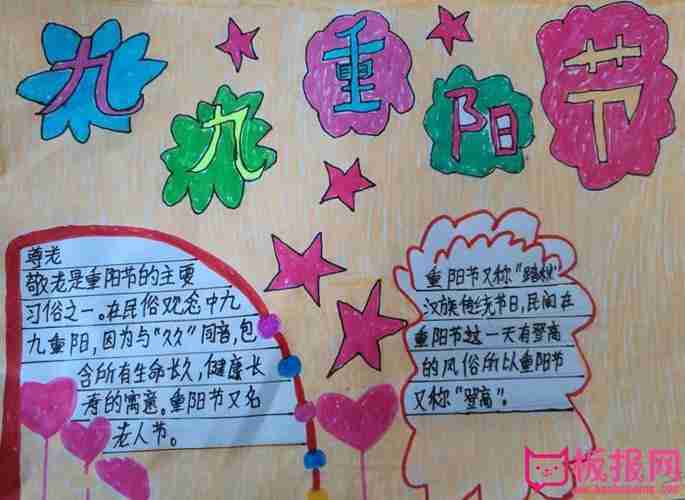 九九重阳节
尊老
敬老是重阳节的主要
习俗之一。在民俗观念中九
九重阳,因为与"久久"同音,包
含所有生命长久,健康长
寿的寓意。重阳节又名
老人节。
重阳节又称"踏秋"
汉族传统节日,民间在
重阳节这一天有登高
的风俗所以重阳节
又称"登高"。
板报网